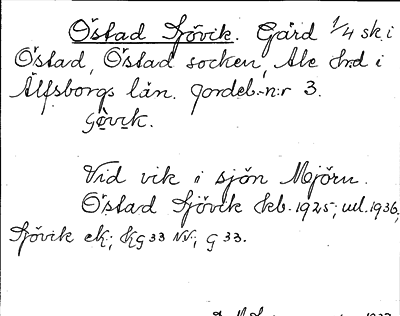 Östad Sjövik. Gård 1/4 sk. i
Östad, Östad socken, Ale hrd i
Älfsborgs län. Jordeb.-n:r 3.
Vid vik i sjön Mjörn.
Östad Sjövik Kkb. 1925; ul. 1936,
Sjövik ek; KG 33 NV; G 33.